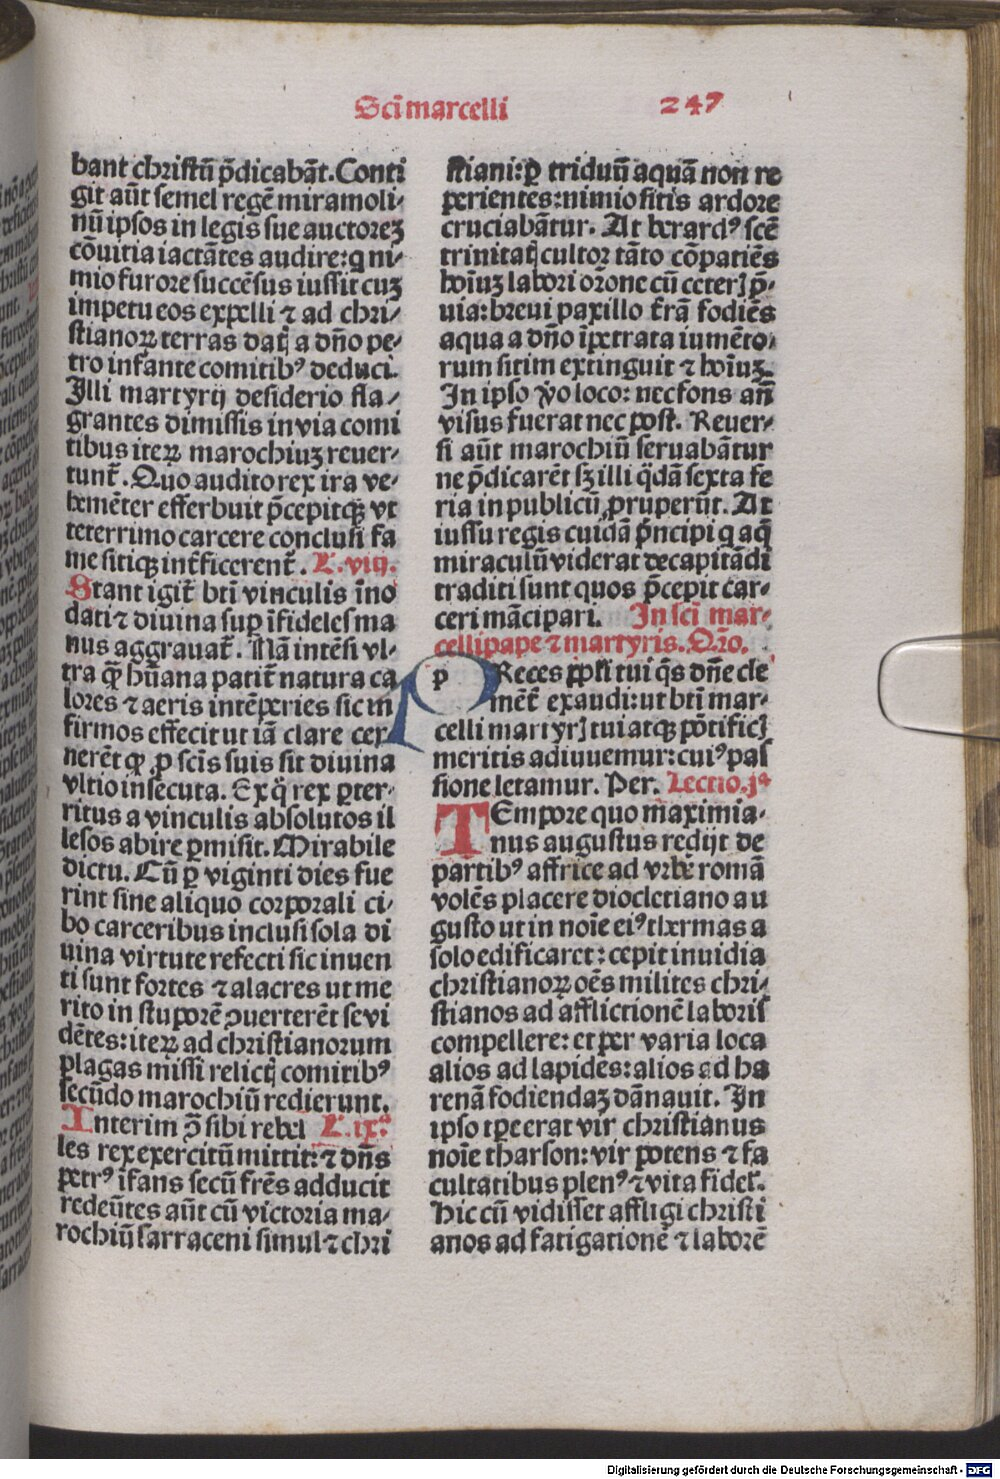 Sc̄i marcelli 247
bant christū p̄dicabāt. Conti
git aūt semel regē miramoli-
nū ipsos in legis sue auctorez
cōuitia iactātes audire: q ni-
mio furore succēsus iussit cuz
impetu eos expelli ⁊ ad chri-
stianoꝝ terras datꝭ a dn̄o pe-
tro infante comitibꝰ deduci.
Illi martyrij desiderio fla-
grantes dimissis in via comi
tibus iteꝝ marochiuz reuer-
tunt̄. Quo audito rex ira ve-
hemēter efferbuit p̄cepitqꝫ vt
teterrimo carcere conclusi fa
me sitiqꝫ int̄ficerent̄. L. viij.
Stant igit̄ bt̄i vinculis īno
dati ⁊ diuina sup īfideles ma
nus aggrauat̄. Nā intēsi vl-
tra qꝫ hūana patit̄ natura ca
lores ⁊ aeris intēperies sic in
firmos effecit ut iā clare cer
nerēt qꝫ ꝓ scīs suis sit diuina
vltio insecuta. Ex q̄ rex p̲ter-
ritus a vinculis absolutos il
lesos abire ꝑmisit. Mirabile
dictu. Cū ꝑ viginti dies fue
rint sine aliquo corporali ci-
bo carceribus inclusi sola di
uina virtute refecti sic inuen
ti sunt fortes ⁊ alacres ut me
rito in stuporē ꝯuerterēt se vi
dētes: iteꝝ ad christianorum
plagas missi relictꝭ comitibꝰ
secūdo marochiū redierunt.
Interim ꝯ̄ sibi rebel L. ix.ᵃ
les rex exercitū mittit: ⁊ dn̄s
petrꝰ īfans secū fr̄es adducit
redeūtes aūt cū victoria ma-
rochiū sarraceni simul ⁊ chri
stiani: ꝑ triduū aquā non re
perientes: nimio sitis ardore
cruciabātur. At berardꝰ scē
trinitatꝭ cultor tāto cōpatiēs
hoīuz labori orōne cū ceterꝭ p̄-
uia: breui paxillo t̄rā fodiēs
aqua a dn̄o īpetrata iumēto-
rum sitim extinguit ⁊ hoīuz.
In ipso ꝟo loco: nec fons an̄
visus fuerat nec post. Reuer-
si aūt marochiū seruabātur
ne p̄dicarēt sꝫ illi q̄dā sexta fe
ria in publicū ꝓruperūt. At
iussu regis cuidā p̄ncipi q aq̄
miraculū viderat decapitādi
traditi sunt quos p̄cepit car-
ceri mācipari. In sc̄i mar-
celli pape ⁊ martyris. Or̄o.
PReces pp̄li tui q̄s dn̄e cle
mēt̄ exaudi: ut bt̄i mar-
celli martyrꝭ tui atqꝫ pōtificꝭ
meritis adiuuemur: cuiꝰ pas
sione letamur. Per. Lectio. jᵃ
TEmpore quo maximia-
nus augustus redijt de
partibꝰ affrice ad vrbē romā
volēs placere diocletiano au
gusto ut in noīe eiꝰ thermas a
solo edificaret: cepit inuidia
christianoꝝ oēs milites chri-
stianos ad afflictionē laboris
compellere: et per varia loca
alios ad lapides: alios ad ha
renā fodiendaz dānauit. In
ipso tꝑe erat vir christianus
noīe tharson: vir potens ⁊ fa
cultatibus plenꝰ ⁊ vita fidel̄.
Hic cū vidisset affligi christi
anos ad fatigationē ⁊ laborē
Digitalisierung gefördert durch die Deutsche Forschungsgemeinschaft - DFG